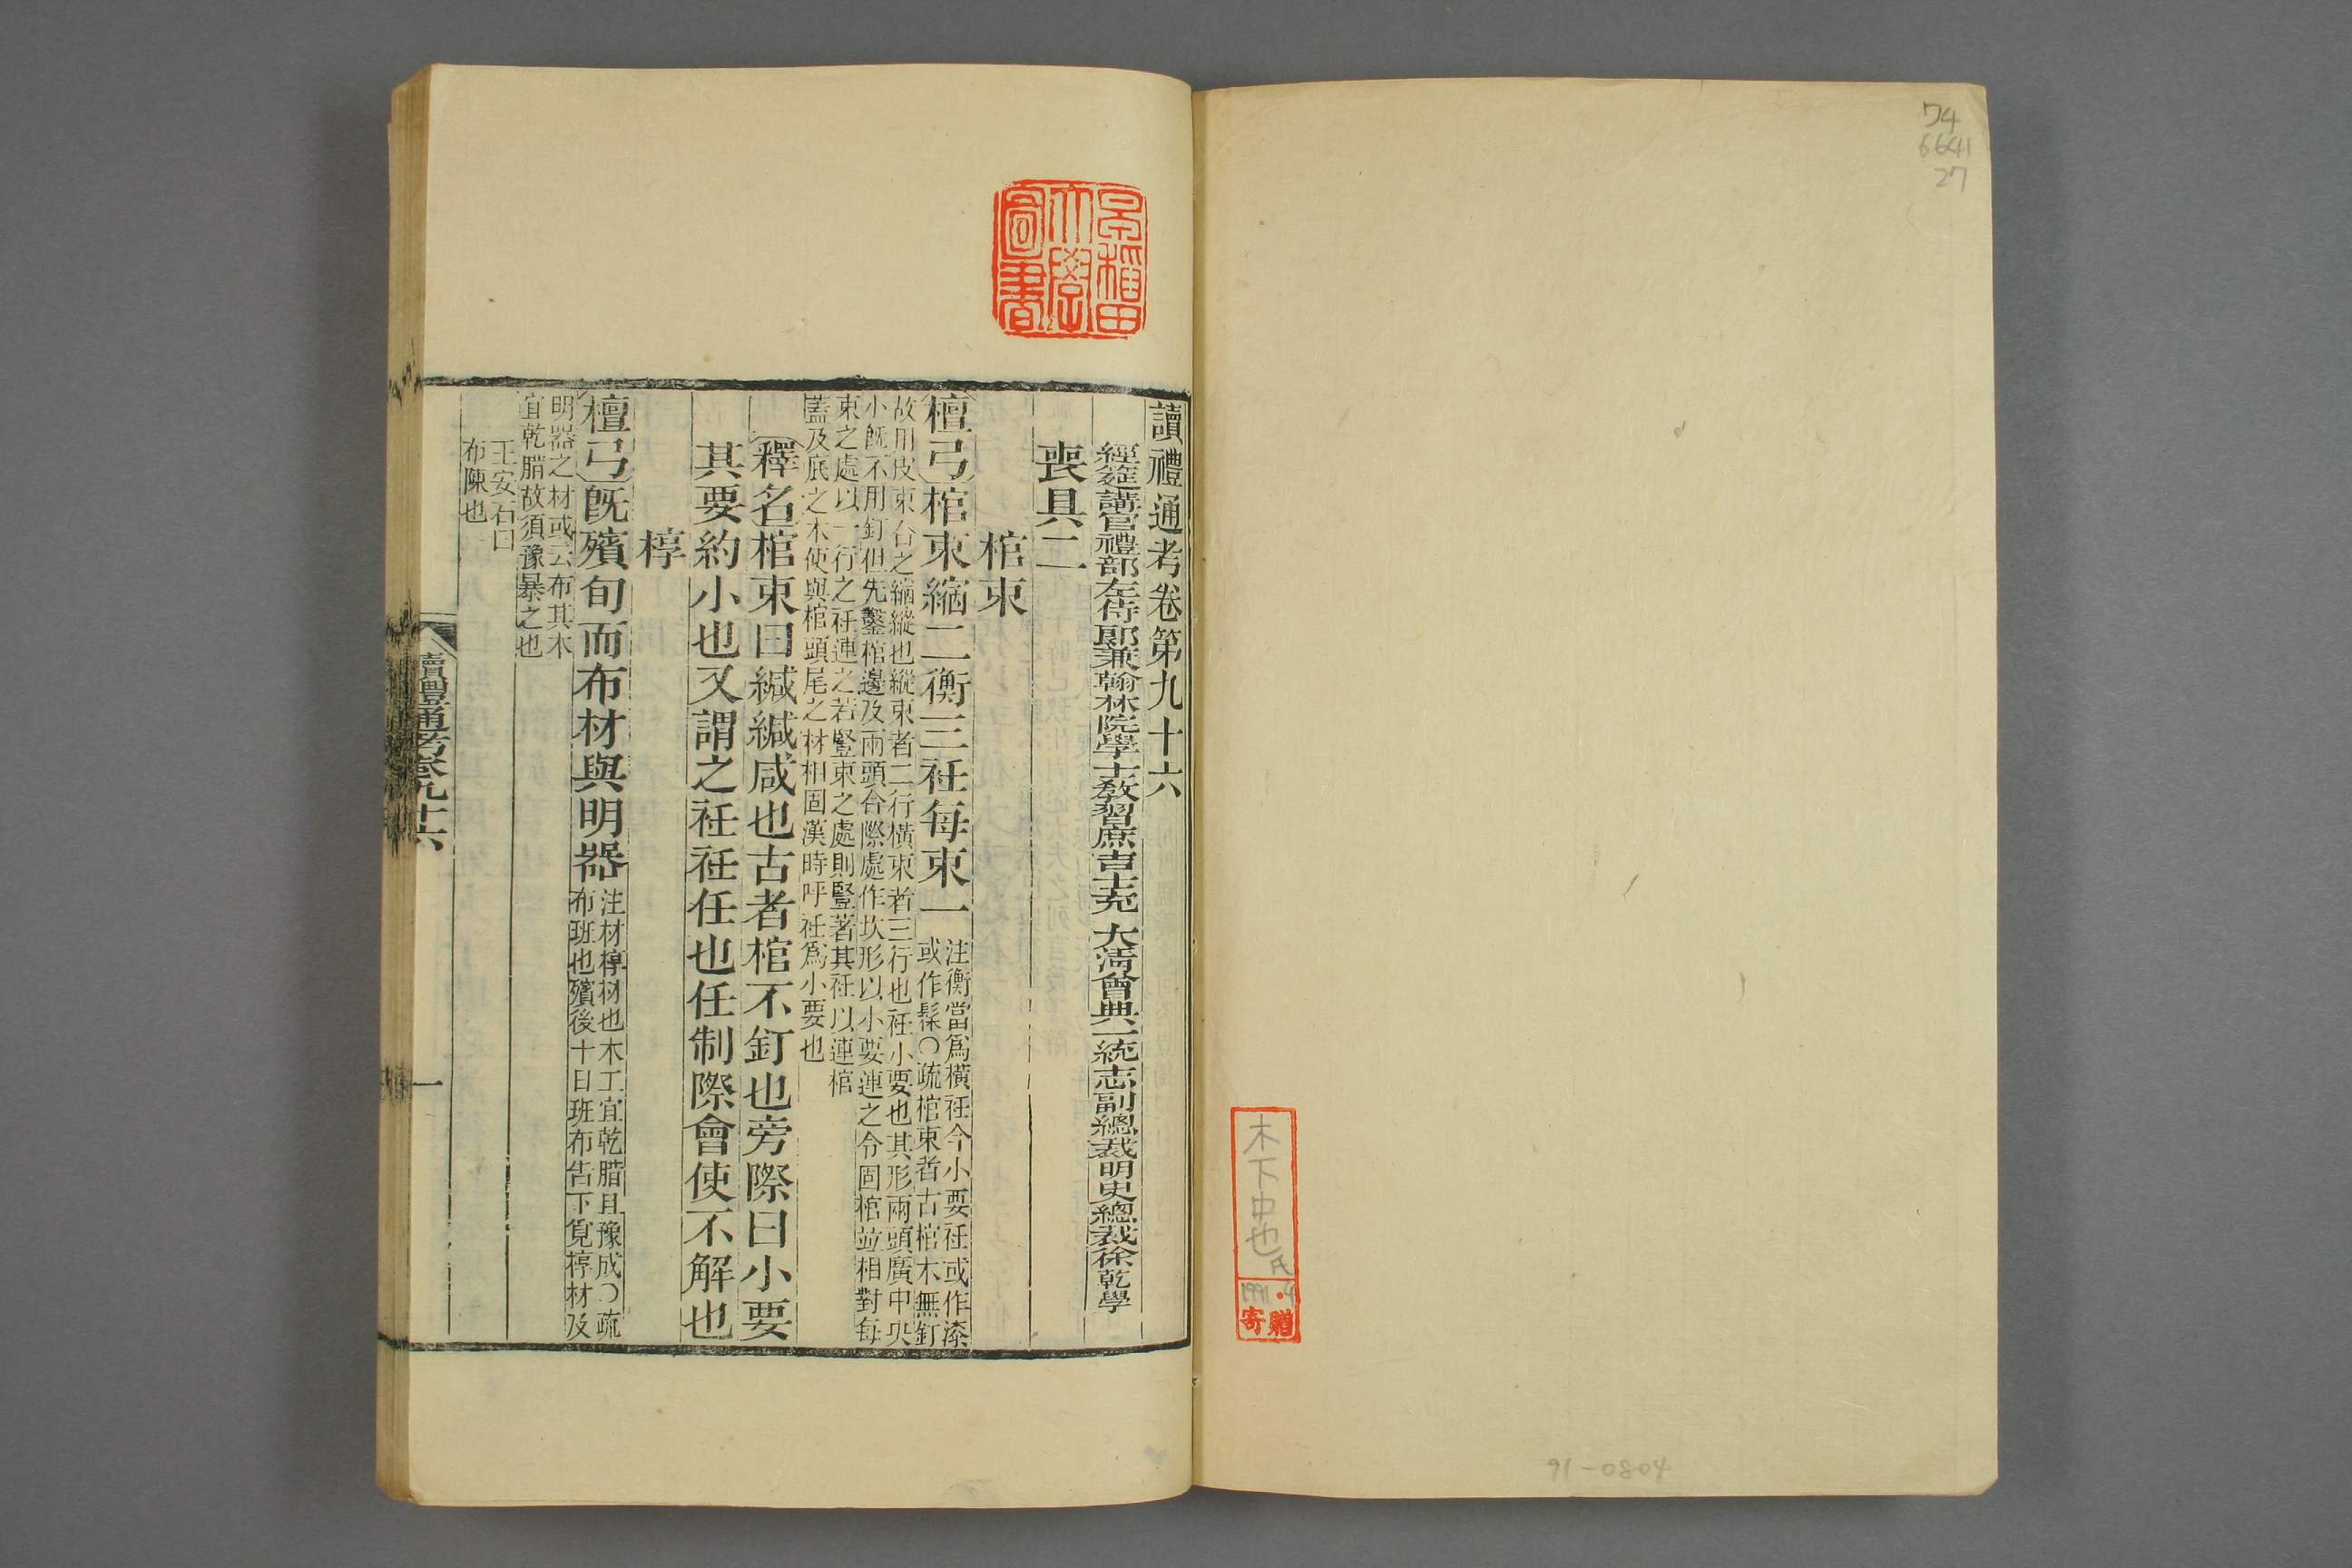 74
6641
27
木下中也氏
寄贈
91-0804
早稲田
大學
圖書
讀禮通考卷第九十六
經筵講官禮部左侍郎兼翰林院學士教習庶吉士充 大清會典一統志副總裁明史總裁徐乾學
喪具二
棺束
檀弓棺束縮二衡三衽每束一
注衡當爲橫衽今小要衽或作漆
或作髹〇疏棺束者古棺木無釘
故用皮束合之縮縱也縱束者二行橫束者三行也衽小要也其形兩頭廣中央
小旣不用釘但先鑿棺邊及兩頭合際處作坎形以小要連之令固棺並相對每
束之處以一行之衽連之若豎束之處則豎著其衽以連棺
蓋及底之木使與棺頭尾之材相固漢時呼衽爲小要也
釋名棺束曰緘緘咸也古者棺不釘也旁際曰小要
其要約小也又謂之衽衽任也任制際會使不解也
椁
檀弓旣殯旬而布材與明器
注材椁材也木工宜乾腊且豫成〇疏
布班也殯後十日班布告下覓椁材及
明器之材或云布其木
宜乾腊故須豫暴之也
王安石曰
布陳也
讀禮通考卷九十六
一